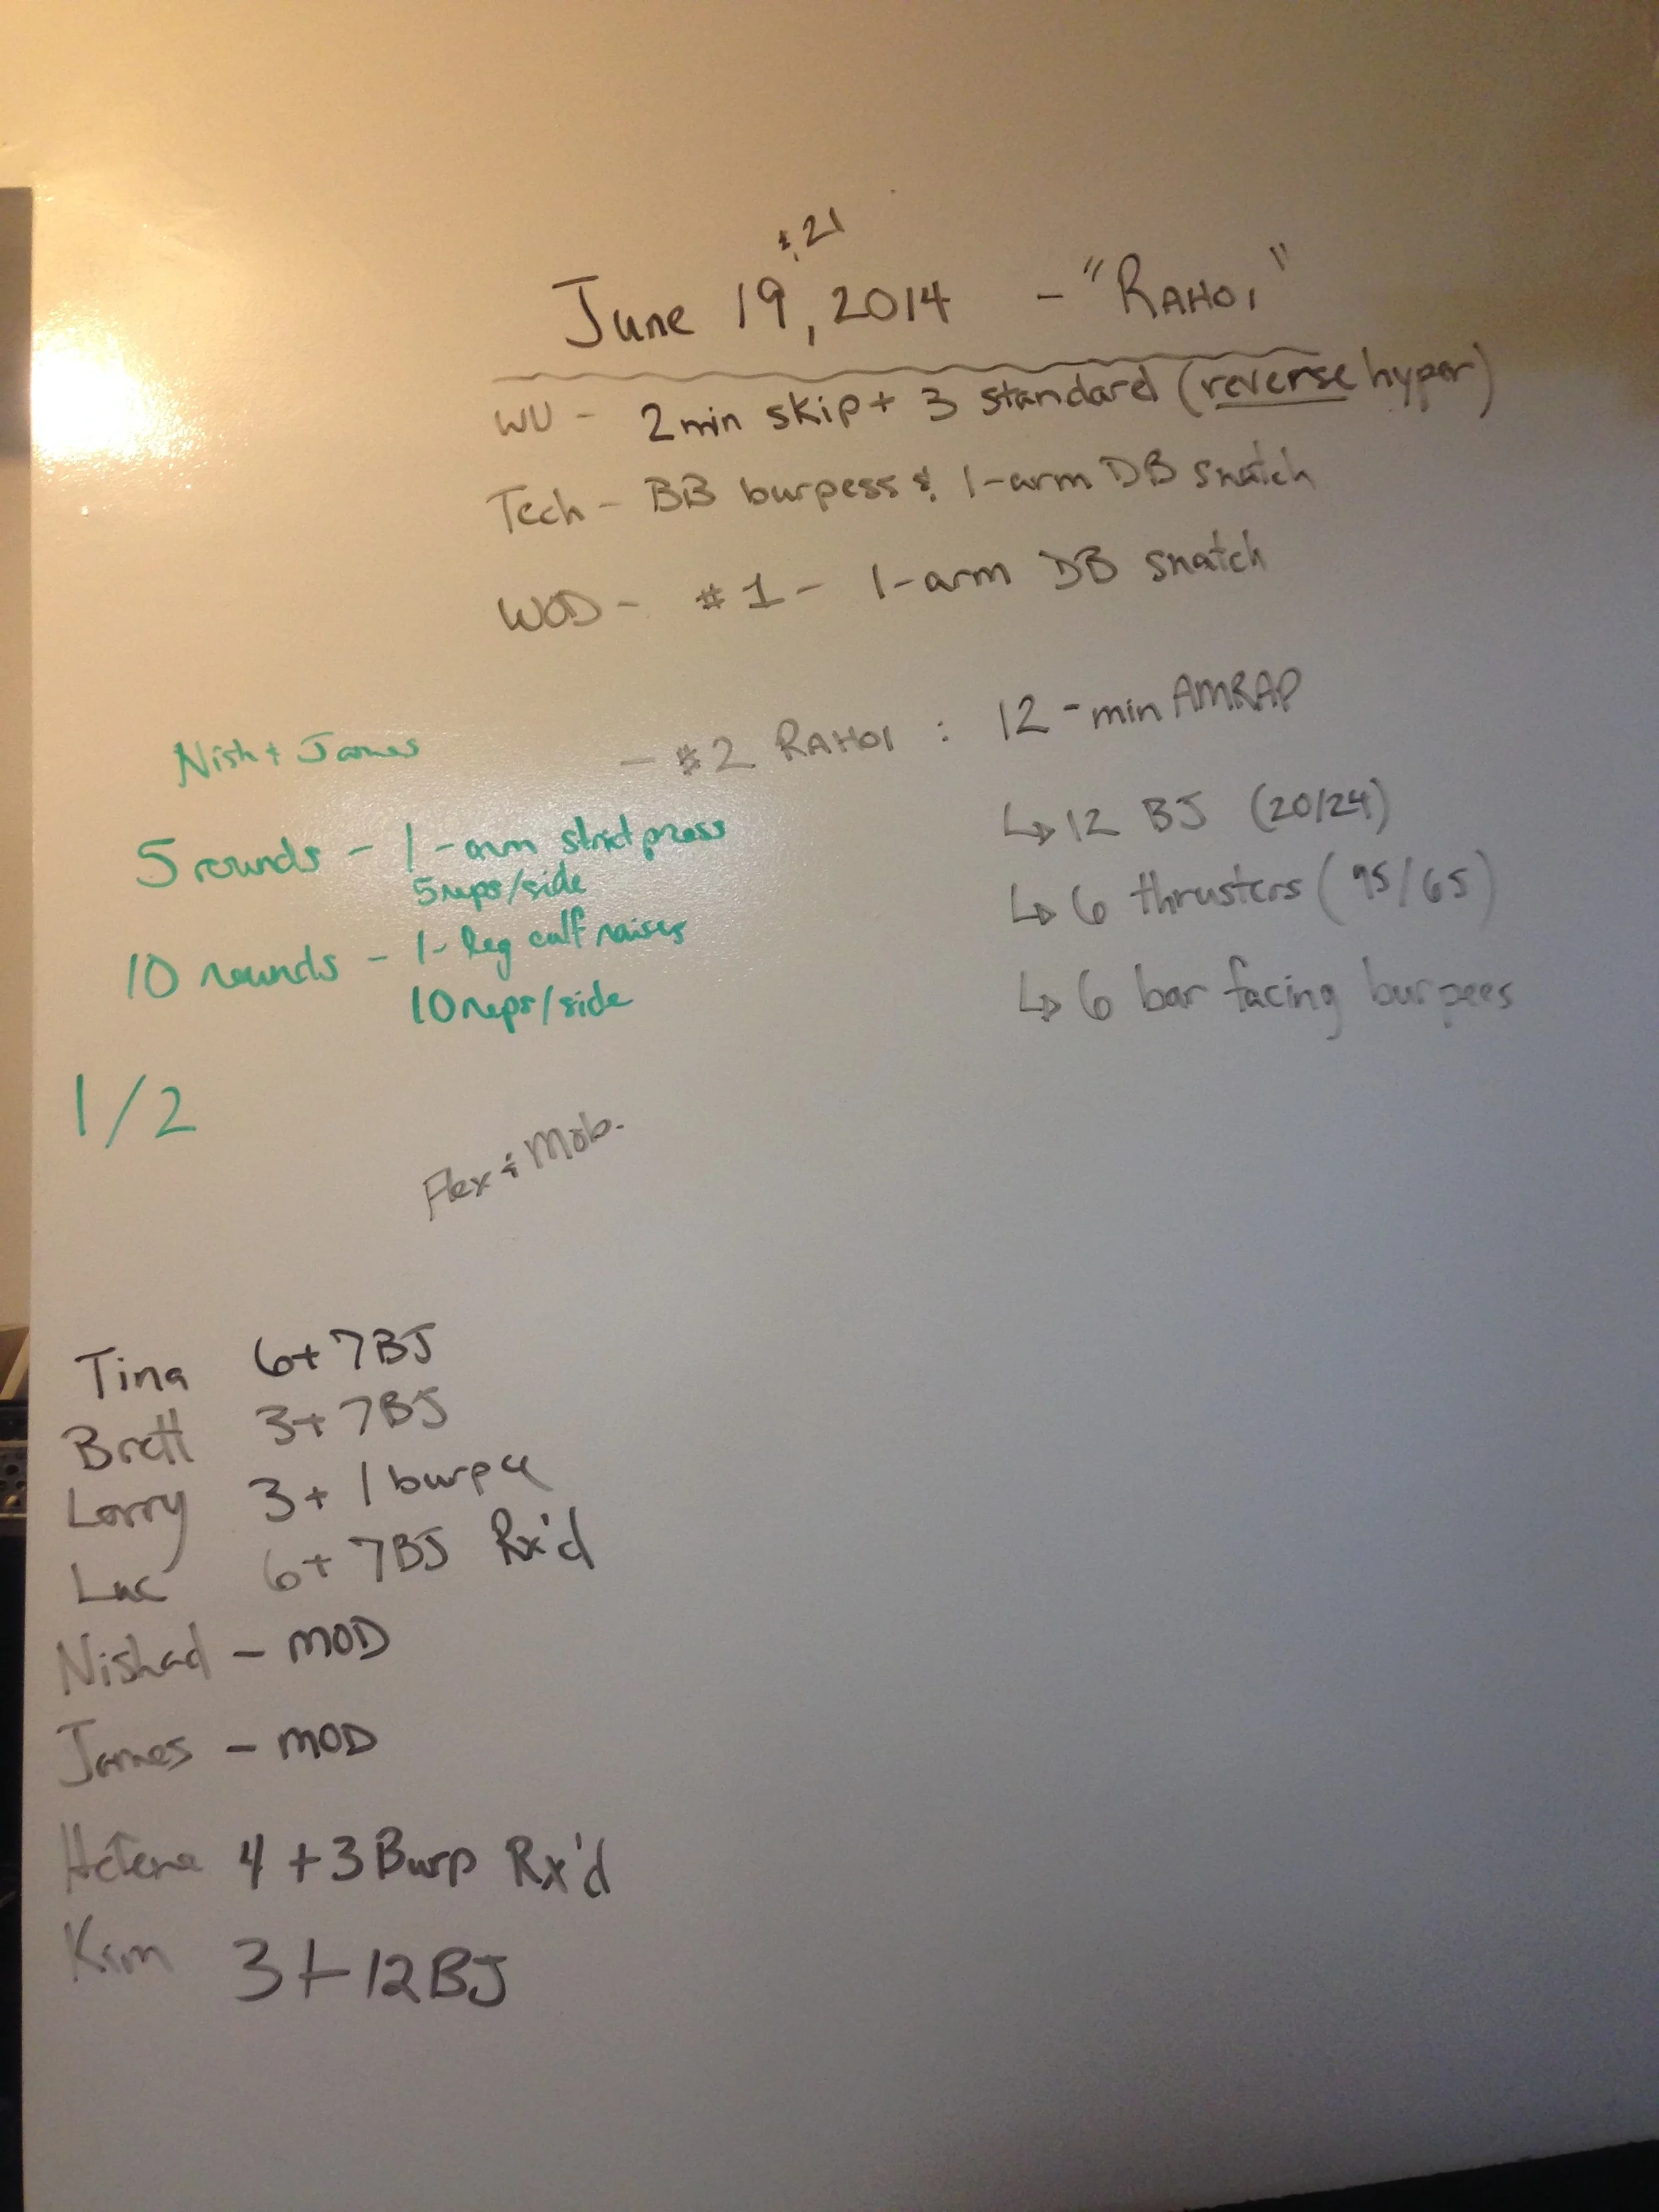 & 21
June 19, 2014 - "RAHOI"
WU - 2 min skip + 3 standard (reverse hyper)
Tech - BB burpess & 1-arm DB snatch
WOD - #1 - 1-arm DB snatch
- #2 RAHOI : 12-min AMRAP
↳ 12 BJ (20/24)
↳ 6 thrusters (95/65)
↳ 6 bar facing burpees
Nish + James
5 rounds - 1-arm strict press
5 reps/side
10 rounds - 1-leg calf raises
10 reps/side
1/2
Flex & Mob.
Tina 6+7BJ
Brett 3+7BJ
Larry 3+1 burpee
Luc 6+7BJ Rx'd
Nishad - MOD
James - MOD
Hélène 4+3 Burp Rx'd
Kim 3+12BJ